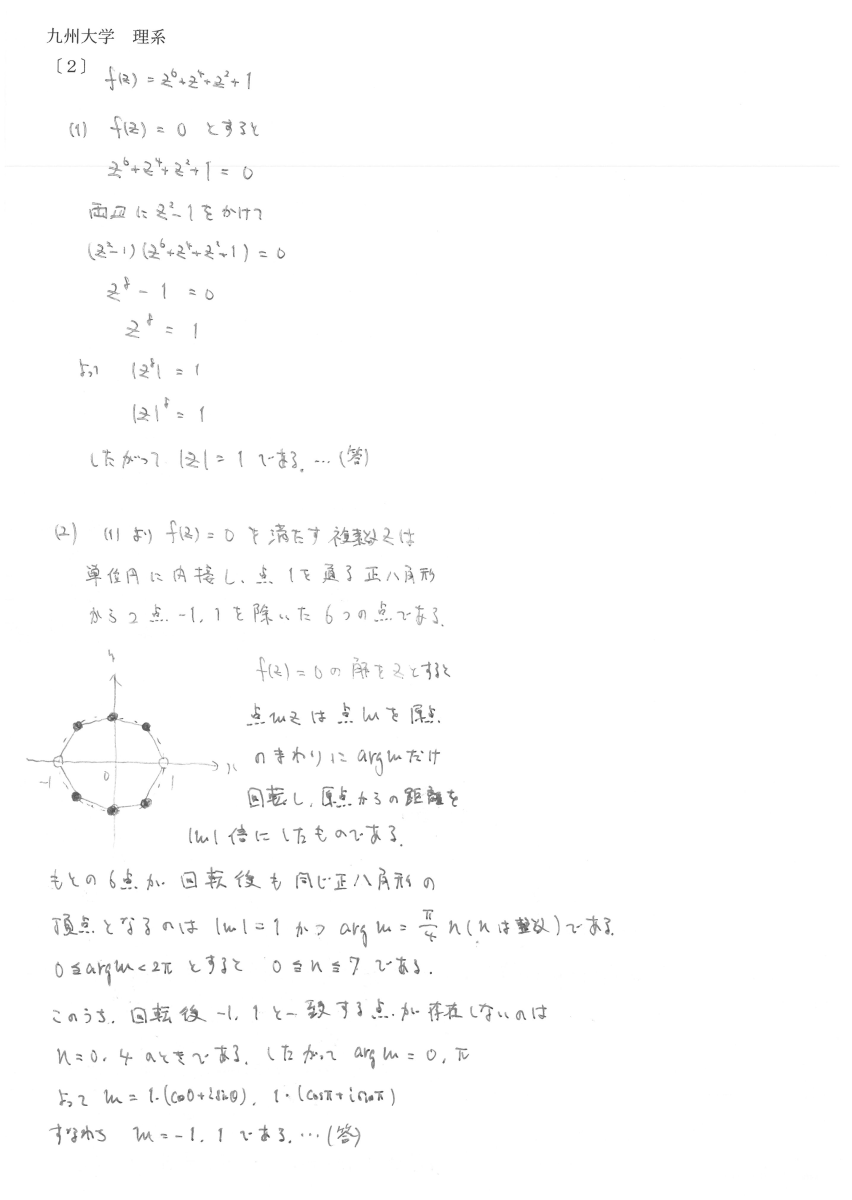 九州大学　理系
〔2〕 f(z) = z⁶+z⁴+z²+1
(1) f(z) = 0 とすると
z⁶+z⁴+z²+1 = 0
両辺に z²-1 をかけて
(z²-1)(z⁶+z⁴+z²+1) = 0
z⁸ - 1 = 0
z⁸ = 1
よって |z⁸| = 1
|z|⁸ = 1
したがって |z| = 1 である. … (答)
(2) (1)より f(z) = 0 を満たす複素数zは
単位円に内接し、点 1 を通る正八角形
から2点 -1, 1 を除いた 6つの点である.
y
x
0
-1
1
f(z) = 0 の解をzとすると
点wzは点wを原点
のまわりに arg wだけ
回転し, 原点からの距離を
|w|倍にしたものである.
もとの6点が回転後も同じ正八角形の
頂点となるのは |w|=1 かつ arg w = π/4 n (nは整数)である.
0≦arg w<2π とすると 0≦n≦7 である.
このうち, 回転後 -1, 1 と一致する点が存在しないのは
n=0, 4 のときである. したがって arg w = 0, π
よって w = 1・(cos0+isin0), 1・(cosπ+isinπ)
すなわち w = -1, 1 である. … (答)